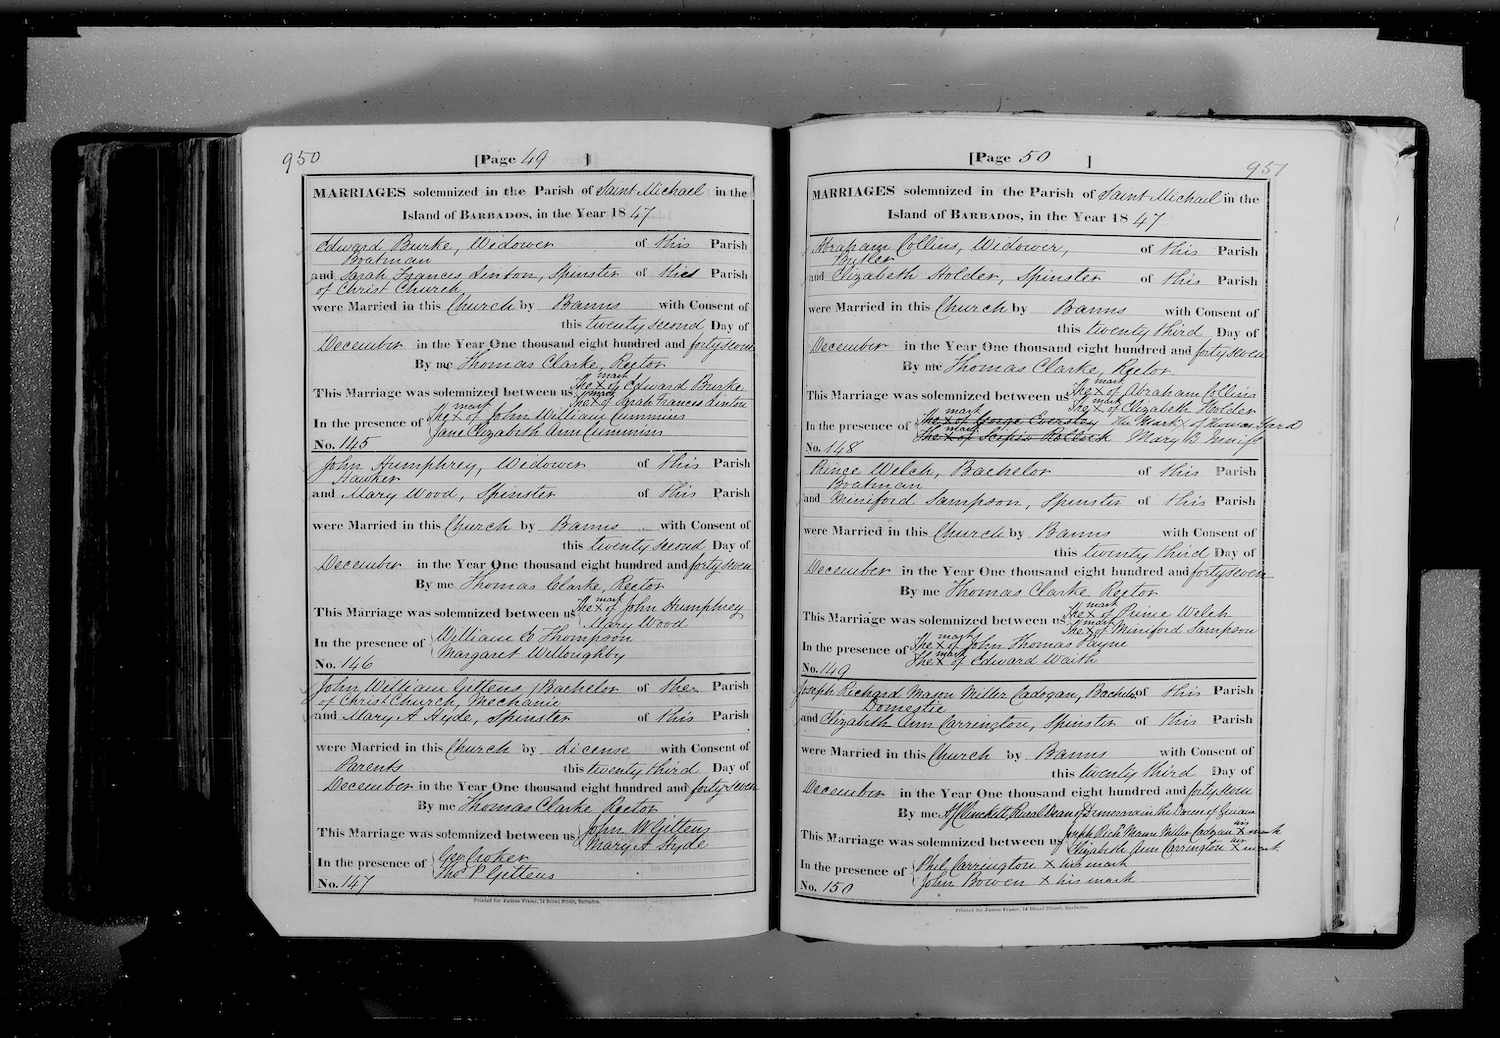 950
[Page 49 ]
MARRIAGES solemnized in the Parish of Saint Michael in the
Island of BARBADOS, in the Year 1847
Edward Burke, Widower of this Parish
Boatman
and Sarah Frances Linton, Spinster of this Parish
of Christ Church
were Married in this Church by Banns with Consent of
this twenty second Day of
December in the Year One thousand eight hundred and forty seven
By me Thomas Clarke, Rector
mark
This Marriage was solemnized between us The X of Edward Burke
mark
The X of Sarah Frances Linton
mark
In the presence of The X of John William Cummins
Jane Elizabeth Ann Cummins
No. 145
John Humphrey, Widower of this Parish
Hawker
and Mary Wood, Spinster of this Parish
were Married in this Church by Banns with Consent of
this twenty second Day of
December in the Year One thousand eight hundred and forty seven
By me Thomas Clarke, Rector
mark
This Marriage was solemnized between us The X of John Humphrey
Mary Wood
In the presence of William C Thompson
Margaret Willoughby
No. 146
John William Gittens, Bachelor of the Parish
of Christ Church, Mechanic
and Mary A Hyde, Spinster of this Parish
were Married in this Church by License with Consent of
Parents this twenty third Day of
December in the Year One thousand eight hundred and forty seven
By me Thomas Clarke Rector
This Marriage was solemnized between us John W Gittens
Mary A Hyde
In the presence of Geo Croker
Thos P Gittens
No. 147
Printed for James Fraser, 14 Broad Street, Barbados.
951
[Page 50 ]
MARRIAGES solemnized in the Parish of Saint Michael in the
Island of BARBADOS, in the Year 1847
Abraham Collins, Widower, of this Parish
Butler
and Elizabeth Holder, Spinster of this Parish
were Married in this Church by Banns with Consent of
this twenty third Day of
December in the Year One thousand eight hundred and forty seven
By me Thomas Clarke, Rector
mark
This Marriage was solemnized between us The X of Abraham Collins
mark
The X of Elizabeth Holder
mark
In the presence of The X of George Eversley The Mark X of Thomas Ford
mark
The X of Scipio Mary B
No. 148
Prince Welch, Bachelor of this Parish
Boatman
and Miniford Sampson, Spinster of this Parish
were Married in this Church by Banns with Consent of
this twenty third Day of
December in the Year One thousand eight hundred and forty seven
By me Thomas Clarke Rector
mark
This Marriage was solemnized between us The X of Prince Welch
mark
The X of Miniford Sampson
mark
In the presence of The X of John Thomas Payne
mark
The X of Edward Waith
No. 149
Joseph Richard Mason Miller Cadogan, Bachelor of this Parish
Domestic
and Elizabeth Ann Carrington, Spinster of this Parish
were Married in this Church by Banns with Consent of
this twenty third Day of
December in the Year One thousand eight hundred and forty seven
By me Rural Dean of Demerara in the Diocese of Guiana
his
This Marriage was solemnized between us Joseph Rich Mason Miller Cadogan X mark
her
Elizabeth Ann Carrington X mark
In the presence of Phil Carrington X his mark
John Bowen X his mark
No. 150
Printed for James Fraser, 14 Broad Street, Barbados.